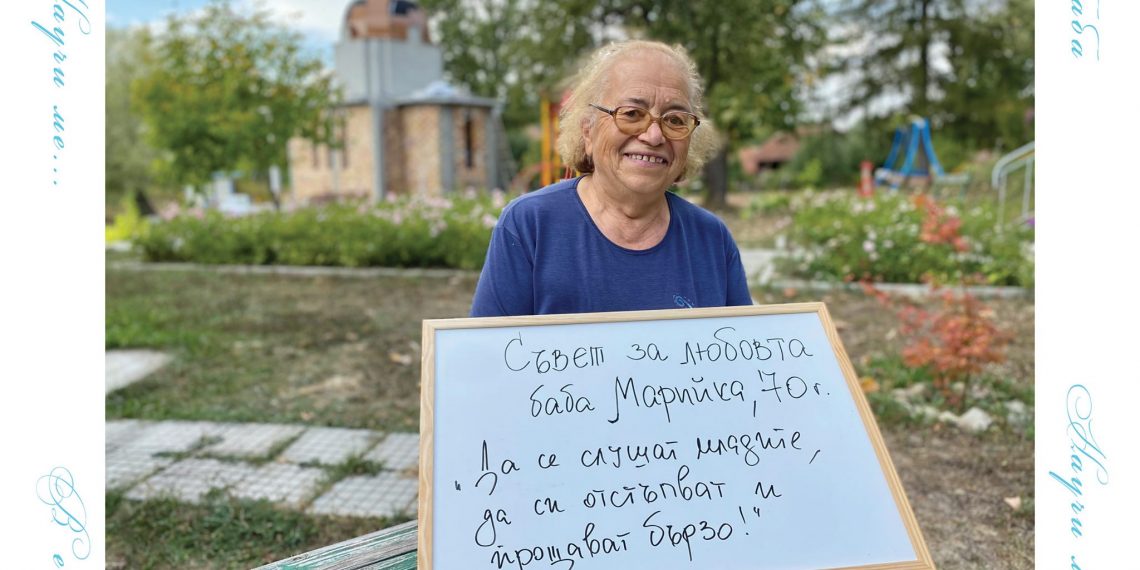 Съвет за любовта
баба Марийка, 70 г.
"Да се слушат младите,
да си отстъпват и
прощават бързо!"
Научи ме...
Научи